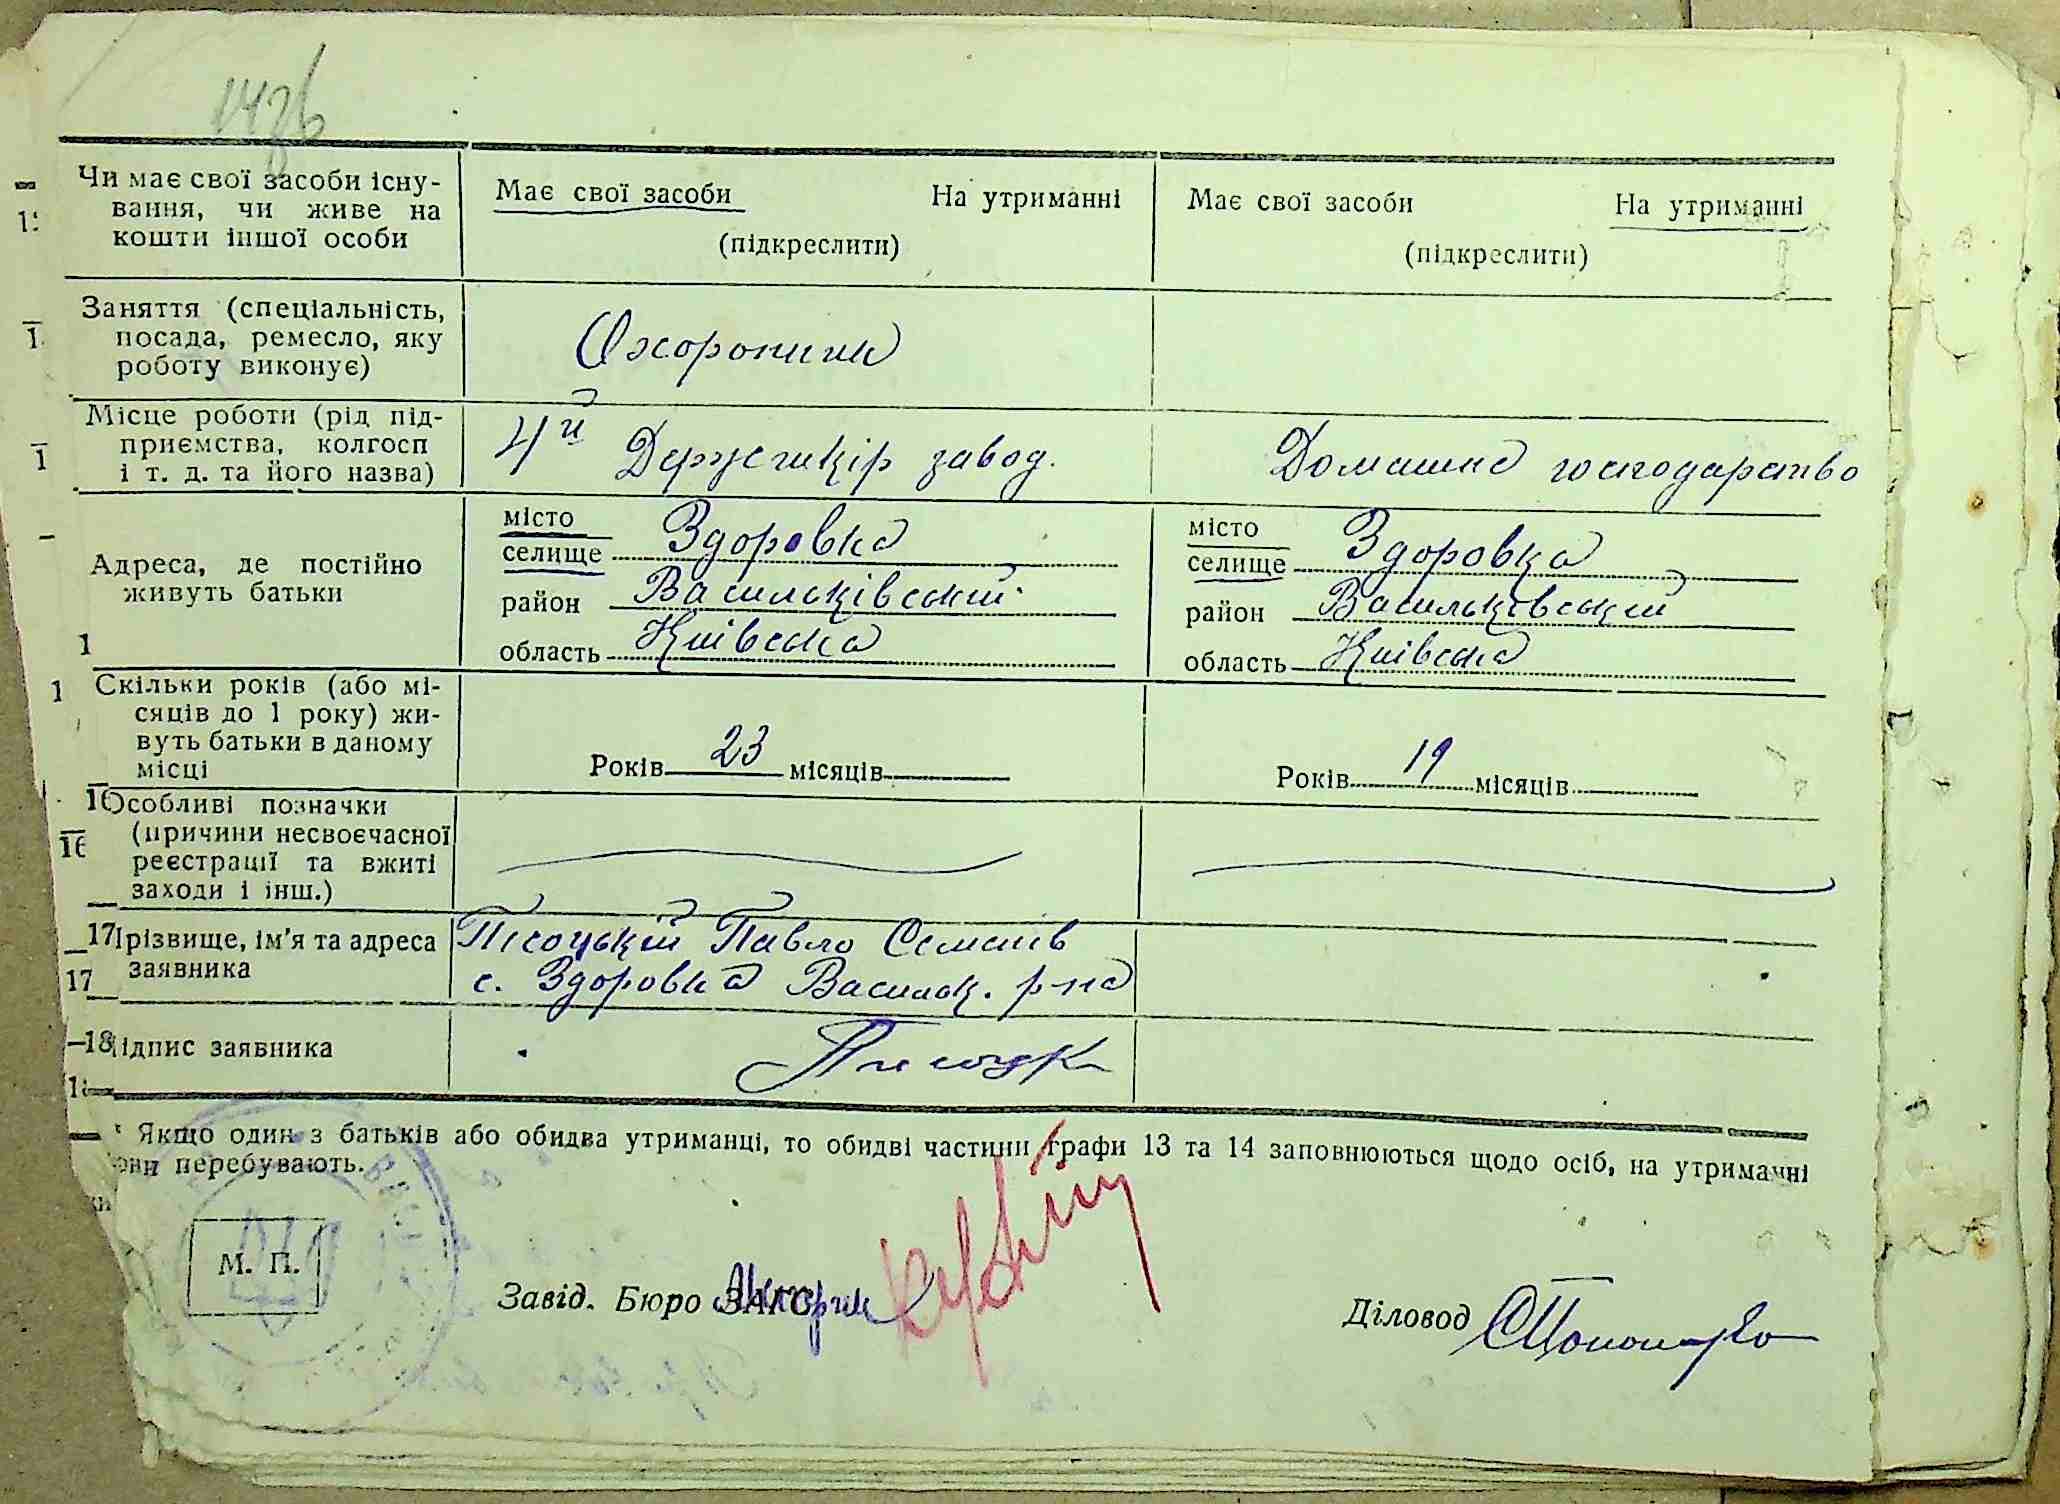 Чи має свої засоби існу-
вання, чи живе на
кошти іншої особи
Має свої засоби На утриманні
(підкреслити)
Має свої засоби На утриманні
(підкреслити)
Заняття (спеціальність,
посада, ремесло, яку
роботу виконує)
Охоронник
Місце роботи (рід під-
приємства, колгосп
і т. д. та його назва)
4й Держшкір завод.
Домашнє господарство
Адреса, де постійно
живуть батьки
місто
селище Здоровка
район Васильківський
область Київська
місто
селище Здоровка
район Васильківський
область Київська
Скільки років (або мі-
сяців до 1 року) жи-
вуть батьки в даному
місці
Років 23 місяців
Років 19 місяців
Особливі позначки
(причини несвоєчасної
реєстрації та вжиті
заходи і інш.)
17
Прізвище, ім'я та адреса
заявника
Пісоцький Павло Семенів
с. Здоровка Васильк. р-на
18
Підпис заявника
* Якщо один з батьків або обидва утриманці, то обидві частини графи 13 та 14 заповнюються щодо осіб, на утриманні
вони перебувають.
М. П.
Завід. Бюро ЗАГС
Діловод